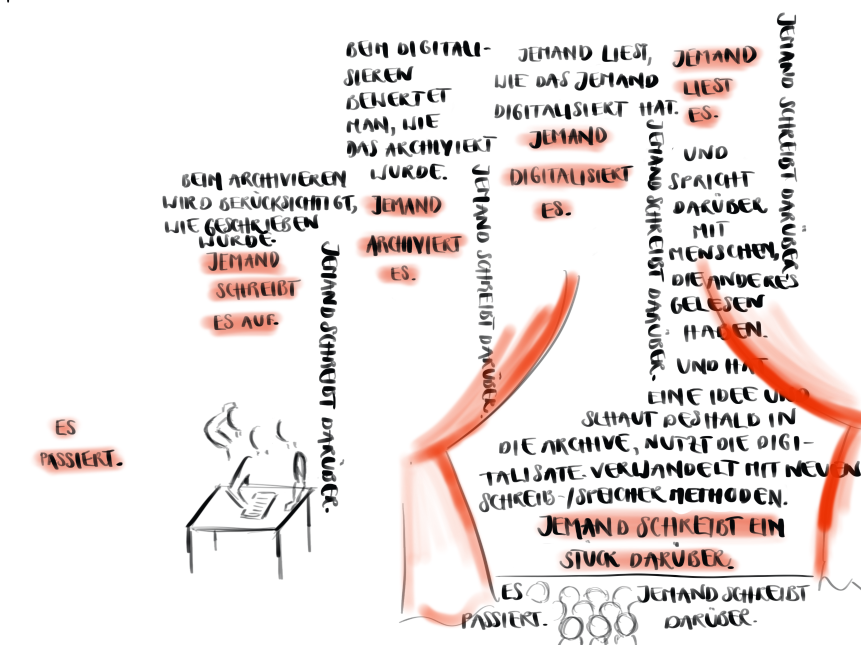 ES
PASSIERT.
BEIM ARCHIVIEREN
WIRD BERÜCKSICHTIGT,
WIE GESCHRIEBEN
WURDE.
JEMAND
SCHREIBT
ES AUF.
JEMAND SCHREIBT DARÜBER.
BEIM DIGITALI-
SIEREN
BEWERTET
MAN, WIE
DAS ARCHIVIERT
WURDE.
JEMAND
ARCHIVIERT
ES.
JEMAND SCHREIBT DARÜBER.
JEMAND LIEST,
WIE DAS JEMAND
DIGITALISIERT HAT.
JEMAND
DIGITALISIERT
ES.
JEMAND SCHREIBT DARÜBER.
JEMAND
LIEST
ES.
UND
SPRICHT
DARÜBER
MIT
MENSCHEN,
DIE ANDERES
GELESEN
HABEN.
UND HAT
EINE IDEE UND
SCHAUT DESHALB IN
DIE ARCHIVE, NUTZT DIE DIGI-
TALISATE. VERWANDELT MIT NEUEN
SCHREIB-/SPEICHER METHODEN.
JEMAND SCHREIBT EIN
STÜCK DARÜBER.
JEMAND SCHREIBT DARÜBER.
ES
PASSIERT.
JEMAND SCHREIBT
DARÜBER.